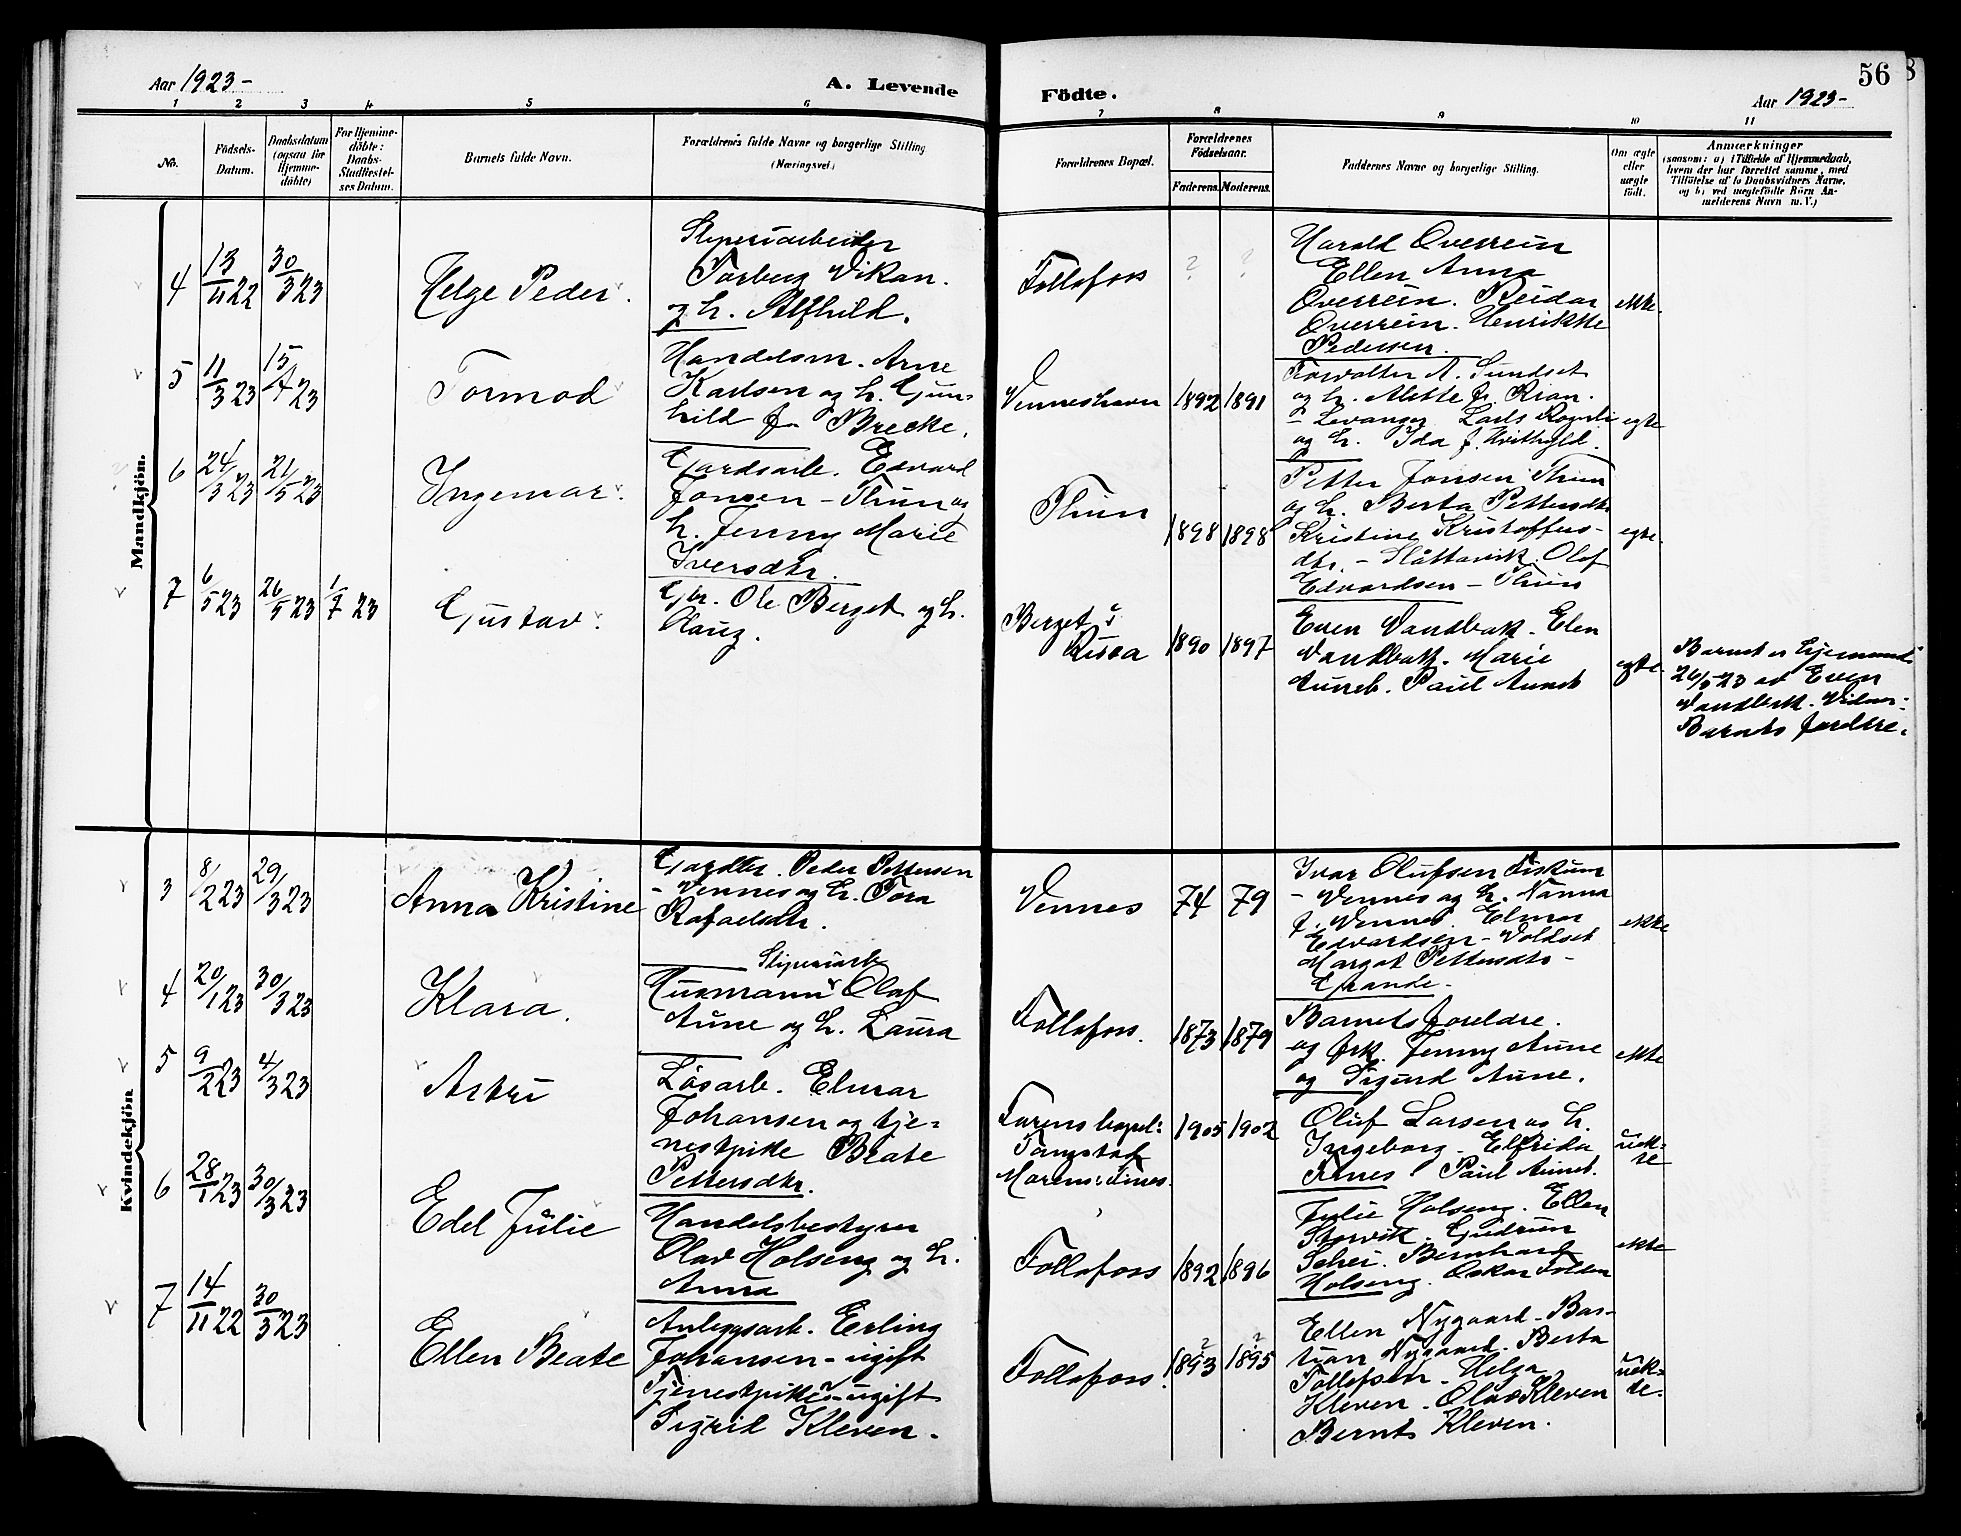 Aar 1923-
A. Levende
Födte.
Aar 1923-
56
1 2 3 4 5 6 7 8 9 10 11
No.
Födsels-
Datum.
Daabsdatum
(ogsaa for
Hjemme-
döbte)
For Hjemme-
döbte:
Daabs-
Stadfæstel-
ses Datum.
Barnets fulde Navn.
Forældrenes fulde Navne og borgerlige Stilling
(Næringsvei)
Forældrenes Bopæl.
Forældrenes
Födselsaar.
Faderens. Moderens.
Faddernes Navne og borgerlige Stilling.
Om ægte
eller
uægte
födt.
Anmærkninger
(saasom: a) i Tilfælde af Hjemmedaab,
hvem der har forrettet samme, med
Tilföielse af to Daabsvidners Navne,
og b) ved uægtefödte Börn An-
melderens Navn m. V.)
Mandkjön.
4
13/11 22
30/3 23
Helge Peder.
Sliperiarbeider
Torberg Vikan.
og h. Alfhild.
Follafoss
? ?
Harald Overrein
Ellen Anna
Overrein. Reidar
Overrein. Henrikke
Pedersen.
ekte.
5
11/3 23
15/4 23
Tormod
Handelsm. Arne
Karlsen og h. Gun-
hild f. Brecke.
Venneshavn
1892 1891
Forvalter A. Sundset
og h. Alette f. Rian.
- Levanger Lars
og h. Ida f.
egte
6
24/3 23
21/5 23
Ingemar.
Gardsarb. Edvard
Jonsen - Thun og
h. Jenny Marie
Iversdtr.
Thun
1898 1898
Petter Jonsen Thun
og h. Berta Pettersdtr
Kristine Kristoffers-
dtr. - Slåttavik. Olof
Edvardsen - Thun
egte.
7
6/5 23
26/5 23
1/7 23
Gustav.
Gbr. Ole Berget og h.
Olaug.
Berget i
Russa
1890 1897
Even Vandbak. Elen
Vandbak. Marie
Auneb. Paul Aunet
egte.
Barnet er hjemmed.
26/5 23 av Even
Vandbak. Vidner:
Barnets foreldre.
Kvindekjön
3
8/2 23
29/3 23
Anna Kristine
Peder Pettersen
- Vennes og h. Tora
Rafaelsdtr.
Vennes
74 79
Ivar Olufsen Fiskum
- Vennes og h. Nanna
f. Vennes. Elmar
Edvardsen - Voldset
Margot Pettersdtr -
Grande.
ekte
4
20/1 23
30/3 23
Klara.
Sliperiarb
Husmann Olaf
Aune og h. Laura
Follafoss.
1873 1879
Barnets foreldre.
og frk. Jenny Aune
og Sigurd Aune.
ekte
5
9/2 23
4/3 23
Astri
Løsarb. Elmar
Johansen og tje-
nestpike Beate
Pettersdtr.
Farens bopel:
Tangstad
Morens: Fines.
1905 1902
Oluf Larsen og h.
Ingeborg. Elfrida
Finnes Paul Aunet.
uek-
te
6
28/1 23
30/3 23
Edel Julie
Handelsbestyrer
Olav Holseng og h.
Anna
Follafoss
1892 1896
Julie Holseng. Ellen
Storvik. Gudrun
Schei. Bernhard
Holseng. Oskar Folden
ekte
7
14/11 22
30/3 23
Ellen Beate
Anleggsarb. Erling
Johansen - ugift
Tjenestpike - ugift
Sigrid Kleven.
Follafoss.
? ?
1893 1895
Ellen Nygaard. Bas-
tian Nygaard. Berta
Follafoss. Helga
Kleven. Olav Kleven
Bernt Kleven.
uek-
te.